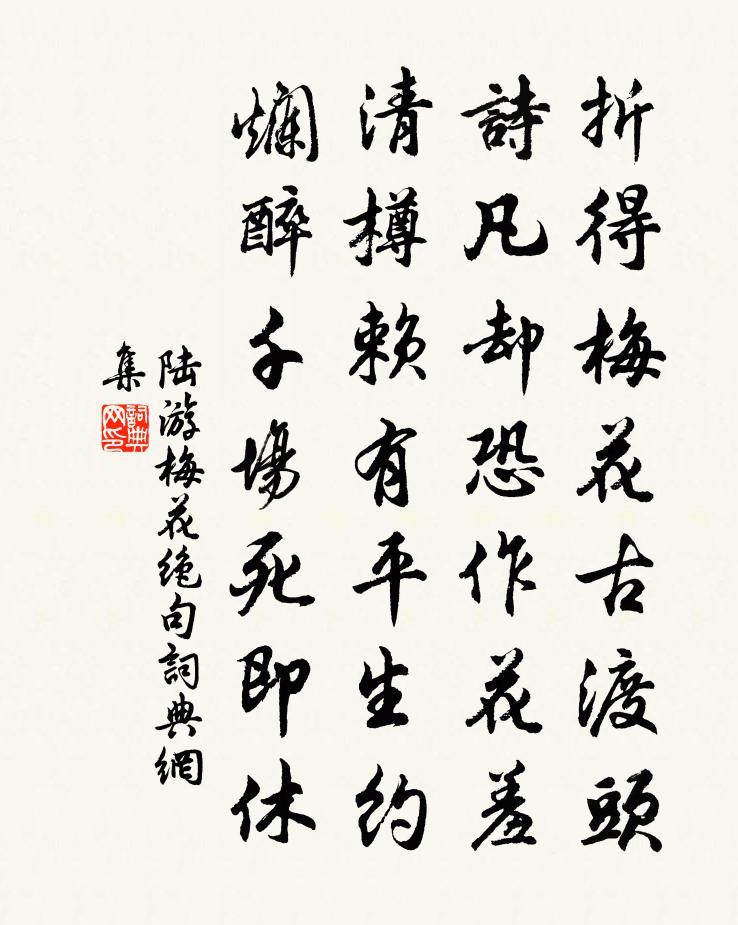 折得梅花古渡頭
詩凡却恐作花羞
清樽賴有平生約
爛醉千場死即休
陸游梅花絶句詞典網
集
詞典
网印